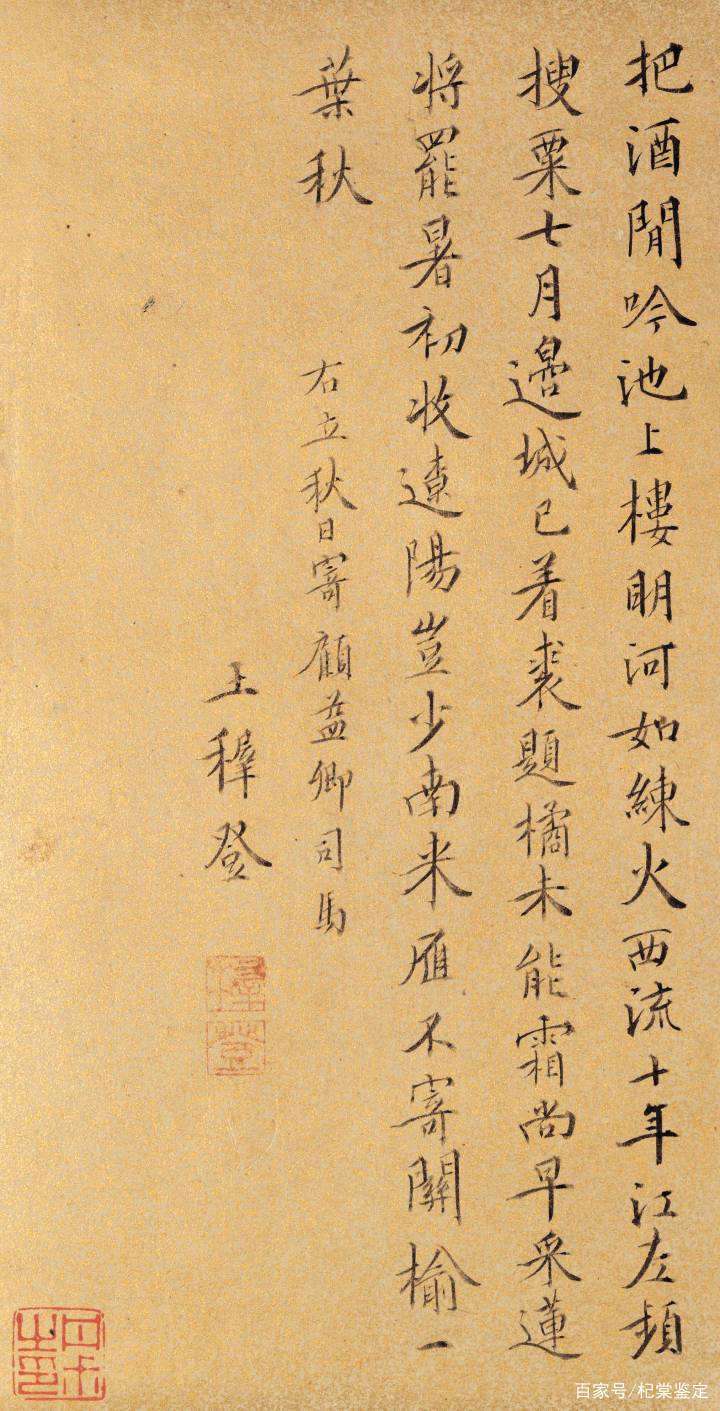 把酒閒吟池上樓明河如練火西流十年江左頻
搜粟七月邊城已着裘題橘未能霜尚早采蓮
將罷暑初收遼陽豈少南来雁不寄關榆一
葉秋
右立秋日寄顧益卿司馬
王穉登
穉登
百家号/杞棠鉴定